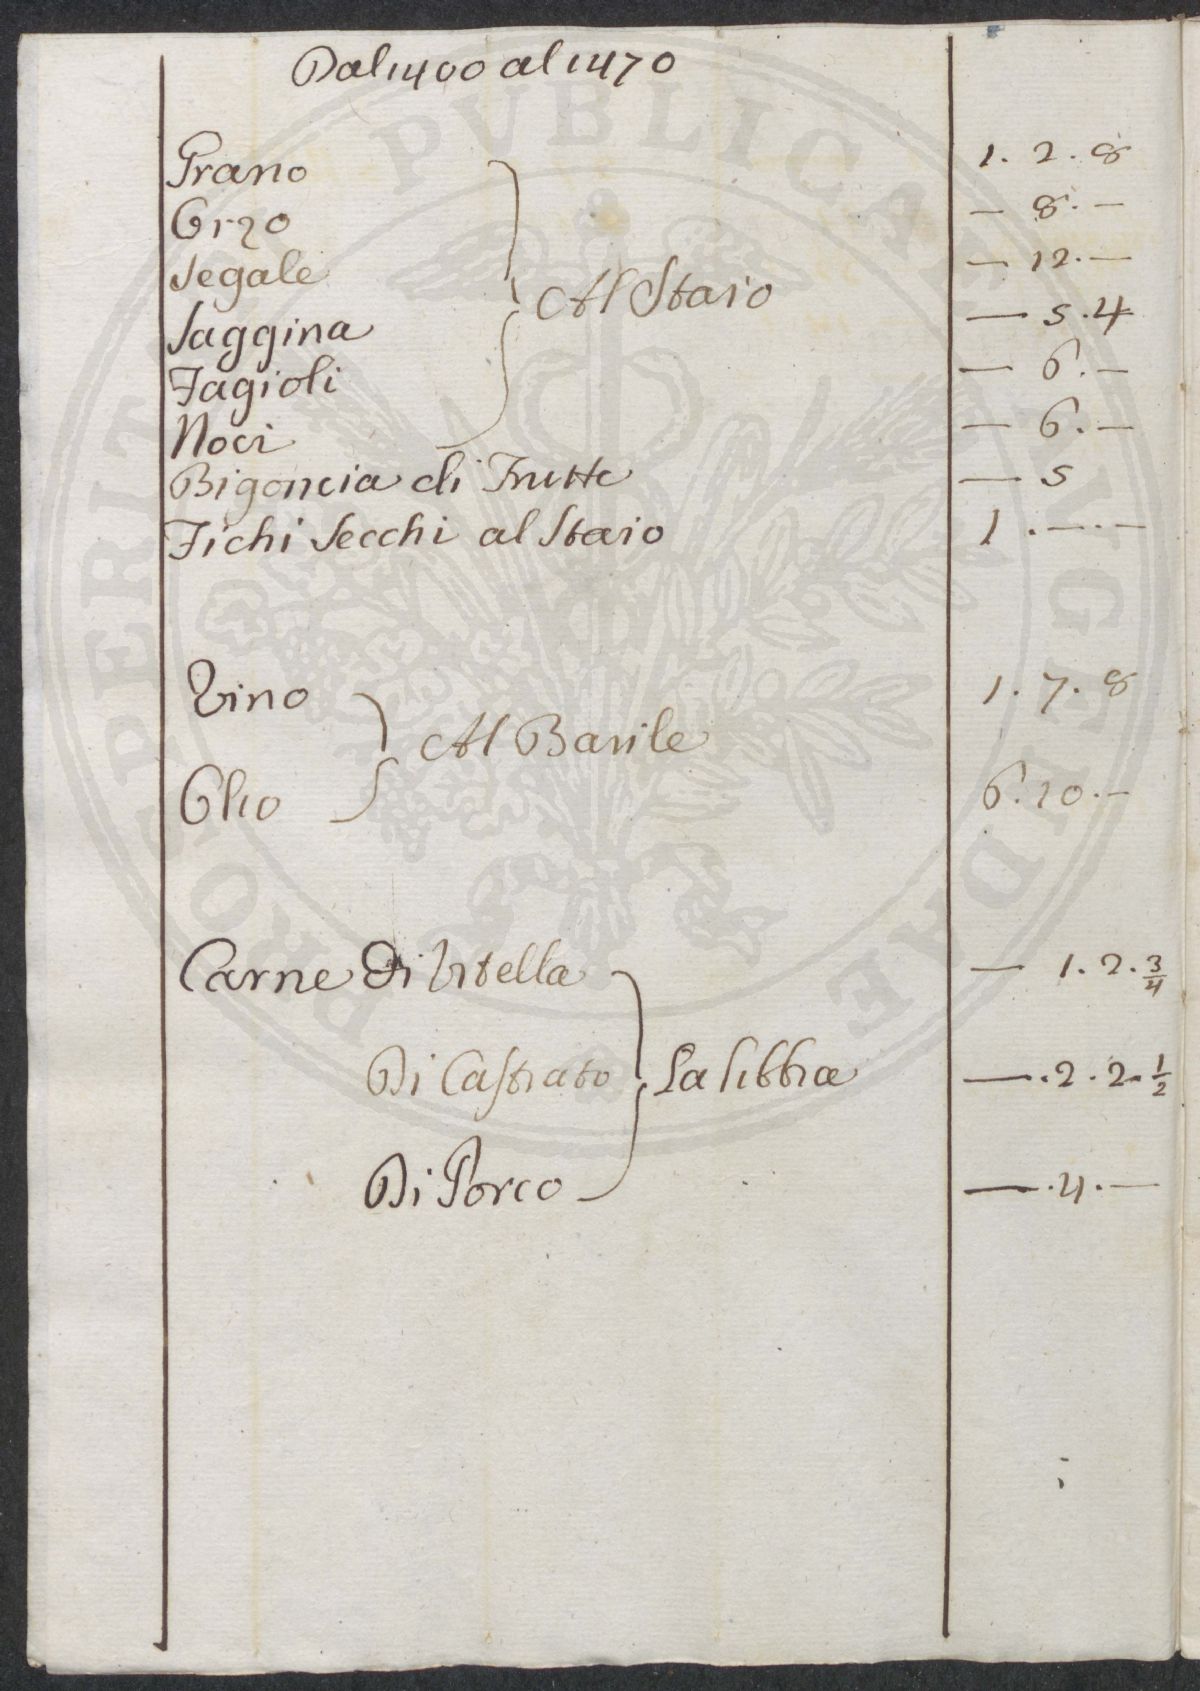 Dal 1400 al 1470
Grano 1. 2. 8
Orzo — 8. —
Segale — 12. —
Al Staio
Saggina — 5. 4
Fagioli — 6. —
Noci — 6. —
Bigoncia di Frutte — 5
Fichi Secchi al Staio 1. —. —
Vino 1. 7. 8
Al Barile
Olio 6. 10. —
Carne Di Vitella — 1. 2. 3/4
Di Castrato La libbra —. 2. 2. 1/2
Di Porco —. 4. —
PROSPERITAS PUBLICAE AVGENDAE